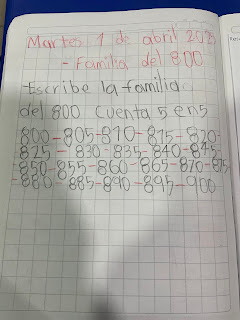 Martes 1 de abril 2025
- Familia del 800
Escribe la familia
del 800 cuenta 5 en 5
800-805-810-815-820-
825-830-835-840-845-
850-855-860-865-870-875
880-885-890-895-900